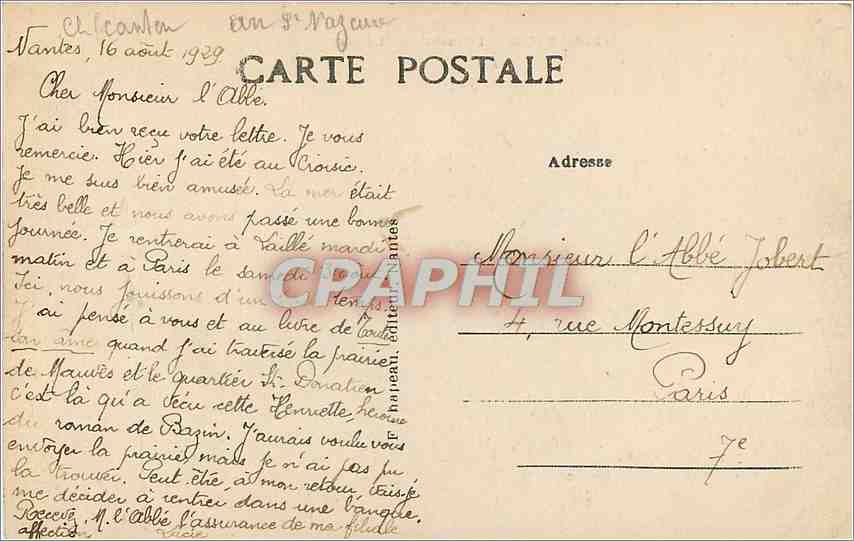 Nantes, 16 août 1929
CARTE POSTALE
Cher Monsieur l'Abbé.
J'ai bien reçu votre lettre. Je vous
remercie. Hier j'ai été au Croisic.
Je me suis bien amusée. La mer était
très belle et nous avons passé une bonne
journée. Je rentrerai à Vaillé mardi
matin et à Paris le samedi août
Ici, nous jouissons d'un temps.
J'ai pensé à vous et au livre de Toute
son âme quand j'ai traversé la prairie
de Mauves et le quartier St. Donatien
c'est là qu'a vécu cette Henriette, héroïne
du roman de Bazin. J'aurais voulu vous
envoyer la prairie mais je n'ai pas pu
la trouver. Peut être, à mon retour, vais-je
me décider à rentrer dans une banque.
Recevez, M. l'Abbé l'assurance de ma filiale
affection. Lucie
Adresse
Monsieur l'Abbé Jobert
4, rue Montessuy
Paris
7e
F. Chapeau, éditeur, Nantes
CPAPHIL